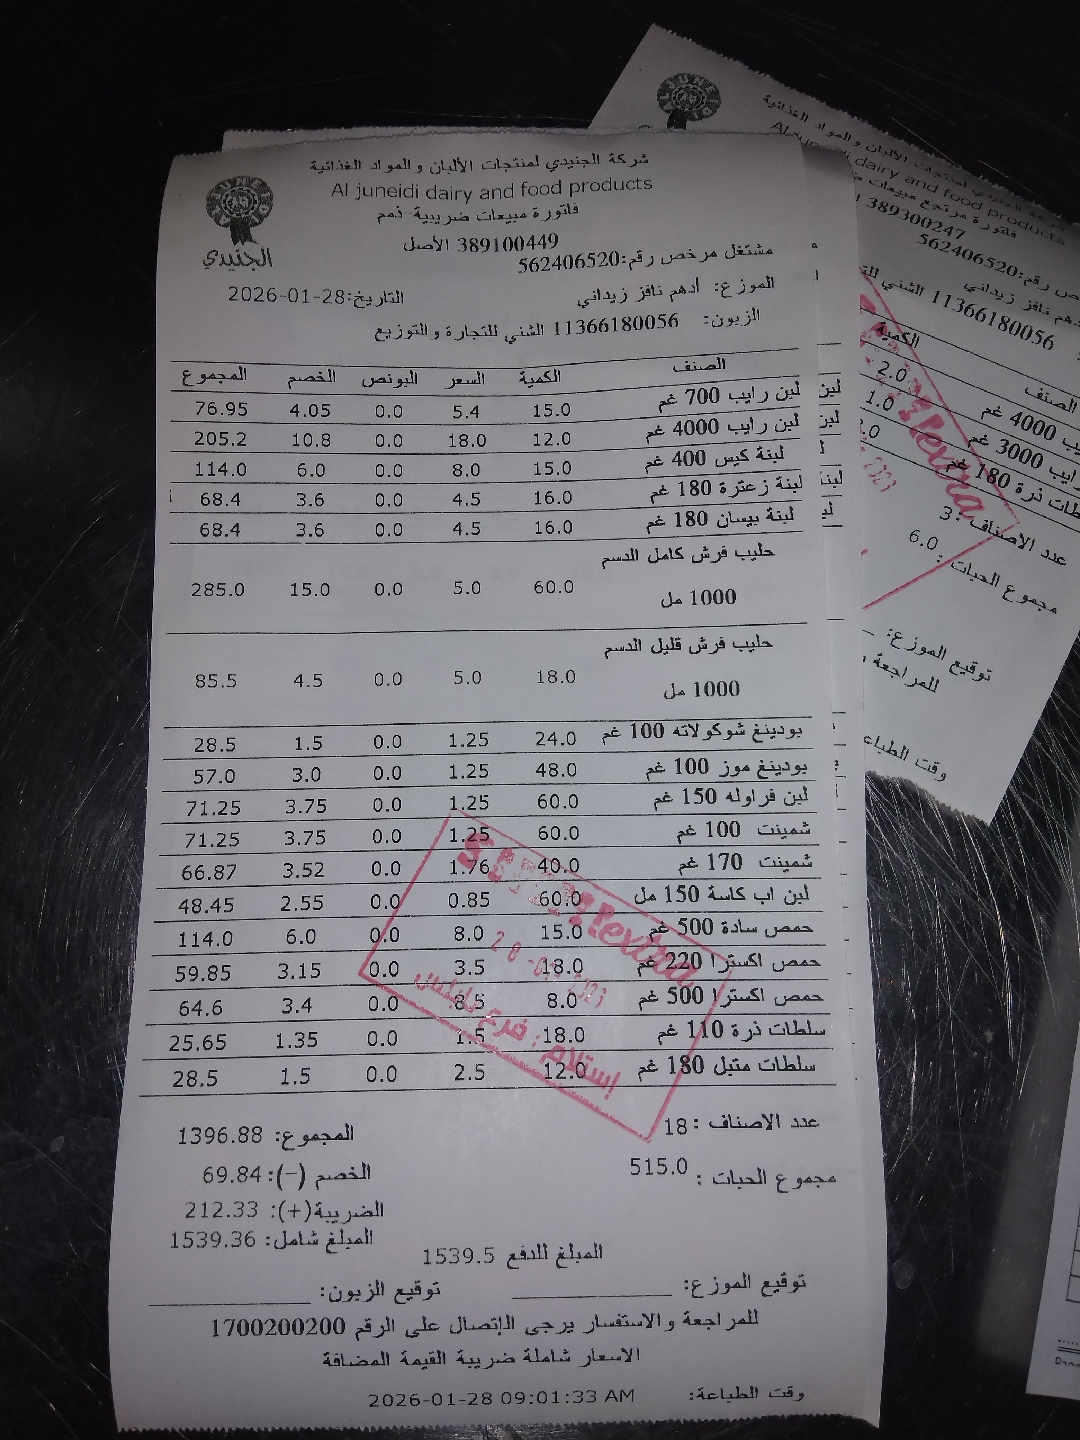 شركة الجنيدي لمنتجات الألبان والمواد الغذائية
Al juneidi dairy and food products
فاتورة مبيعات ضريبية-ذمم
389100449 الأصل
الجنيدي
مشتغل مرخص رقم:562406520
الموزع: أدهم نافز زيداني التاريخ:28-01-2026
الزبون: 11366180056 الشني للتجارة والتوزيع
الصنف الكمية السعر البونص الخصم المجموع
لبن رايب 700 غم 15.0 5.4 0.0 4.05 76.95
لبن رايب 4000 غم 12.0 18.0 0.0 10.8 205.2
لبنة كيس 400 غم 15.0 8.0 0.0 6.0 114.0
لبنة زعترة 180 غم 16.0 4.5 0.0 3.6 68.4
لبنة بيسان 180 غم 16.0 4.5 0.0 3.6 68.4
حليب فرش كامل الدسم
1000 مل 60.0 5.0 0.0 15.0 285.0
حليب فرش قليل الدسم
1000 مل 18.0 5.0 0.0 4.5 85.5
بودينغ شوكولاته 100 غم 24.0 1.25 0.0 1.5 28.5
بودينغ موز 100 غم 48.0 1.25 0.0 3.0 57.0
لبن فراوله 150 غم 60.0 1.25 0.0 3.75 71.25
شمينت 100 غم 60.0 1.25 0.0 3.75 71.25
شمينت 170 غم 40.0 1.76 0.0 3.52 66.87
لبن اب كاسة 150 مل 60.0 0.85 0.0 2.55 48.45
حمص سادة 500 غم 15.0 8.0 0.0 6.0 114.0
حمص اكسترا 220 غم 18.0 3.5 0.0 3.15 59.85
حمص اكسترا 500 غم 8.0 8.5 0.0 3.4 64.6
سلطات ذرة 110 غم 18.0 1.5 0.0 1.35 25.65
سلطات متبل 180 غم 12.0 2.5 0.0 1.5 28.5
إستلام: فرع نابلس
عدد الاصناف : 18 المجموع: 1396.88
مجموع الحبات : 515.0 الخصم (-): 69.84
الضريبة(+): 212.33
المبلغ شامل: 1539.36
المبلغ للدفع 1539.5
توقيع الموزع: توقيع الزبون:
للمراجعة والاستفسار يرجى الإتصال على الرقم 1700200200
الاسعار شاملة ضريبة القيمة المضافة
وقت الطباعة: 2026-01-28 09:01:33 AM
شركة الجنيدي لمنتجات الألبان والمواد الغذائية
dairy and food products
فاتورة مرتجع مبيعات
389300247
رقم:562406520
نافز زيداني
11366180056 الشني
الصنف الكمية
4000 غم 2.0
رايب 3000 غم 1.0
ذرة 180 غم
عدد الاصناف : 3
مجموع الحبات : 6.0
توقيع الموزع:
للمراجعة
وقت